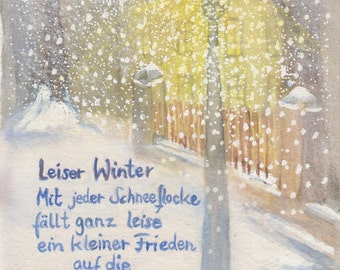 Leiser Winter
Mit jeder Schneeflocke
fällt ganz leise
ein kleiner Frieden
auf die